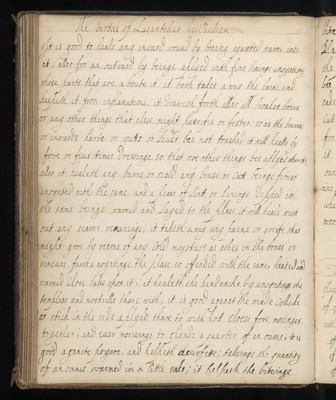 The Vertue of Lucatellas his Balsam
It is good to heale any inward wound by being squirted warm into
it; allso for an outward by being aplyed with fine linings anoynting
those parts that are aboute it: it both takes away the paine and
keepeth it from inflamation it draweth forth allso all broaken bones
or any other things that else might putrifie or fester; so as the braines
or inwards harte or gutts or liver bee not touched it will heale by
fore or five times dressings so that noe other things bee aplyed thereto
allso it healeth any burne or scald any brus or Cutt being first
anoynted with the same and a piece of lint or linings dipped in
the same beinge warmed and layed to the place it will heale with
out any scarre remayninge, it taketh away any paine or griefe that
might grow by reson of any Cold moysture or aches in the bones or
sinewes, first anoynting the place so ofended with the same, heated and
warmed close laps upon it; it healeth the headeache by anoynting the
temples and nostrills thare with, it is good against the winde Collicke
or stitch in the side aplyed thare to with hot cloose fore mornings
to gether; and ever morninge to spende a quarter of an ounce, it is
good against poyson, and killeth; takeinge the quantity
of an ounce warmed in a little sacke; it helpeth the bitings